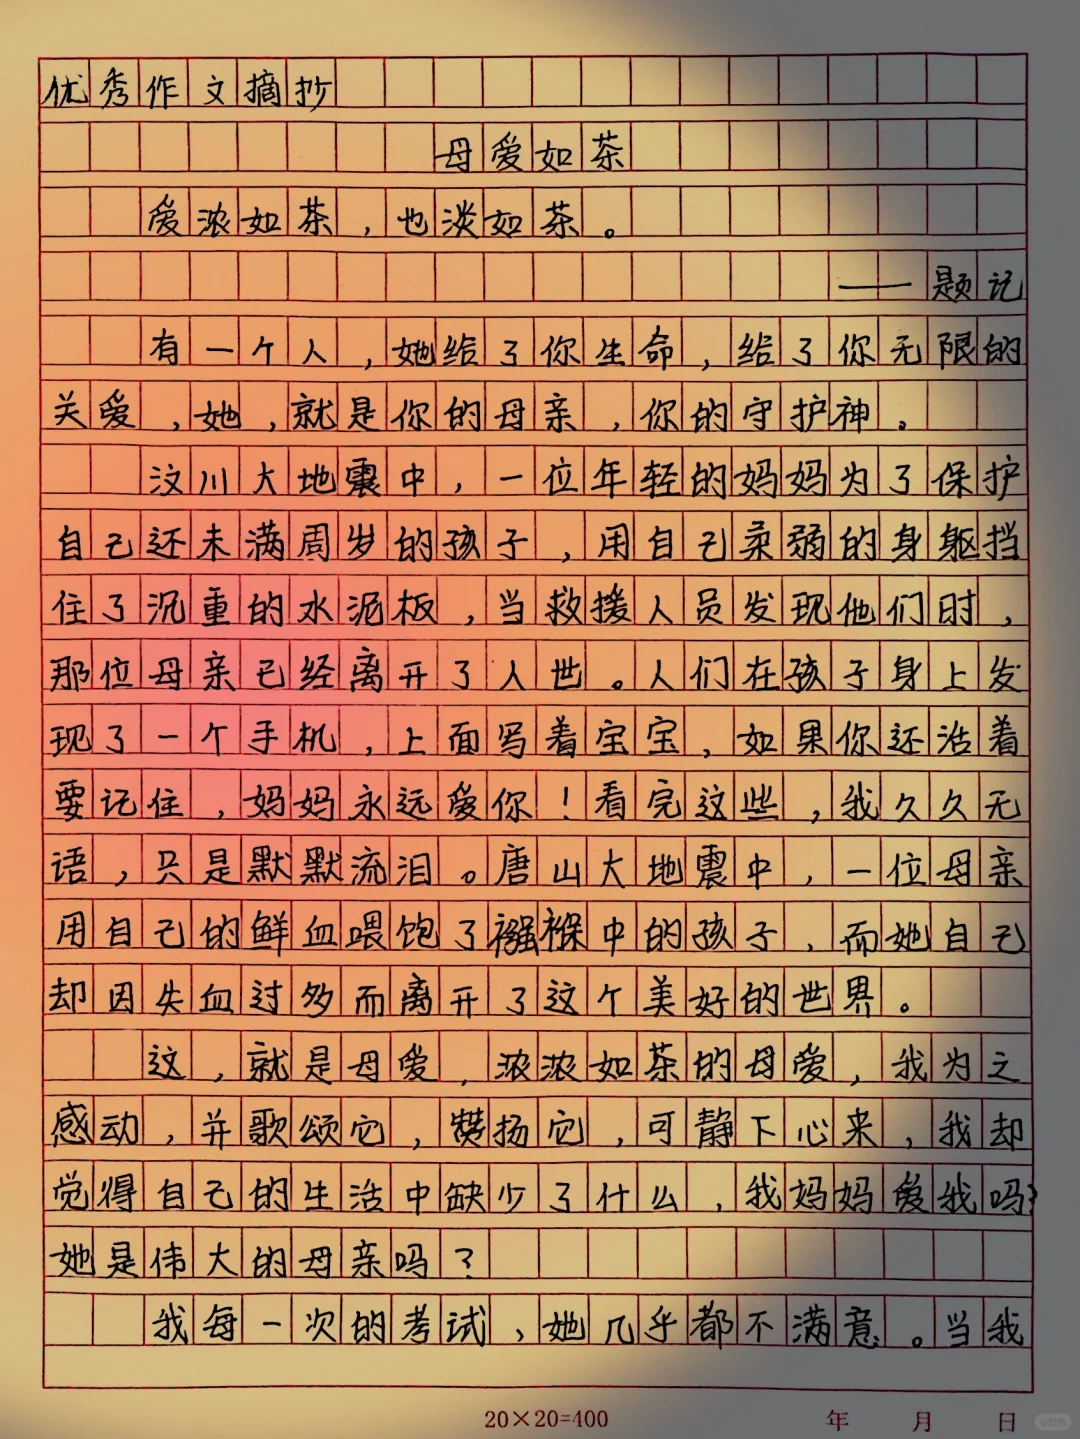 优秀作文摘抄
母爱如茶
爱浓如茶，也淡如茶。
——题记
有一个人，她给了你生命，给了你无限的
关爱，她，就是你的母亲，你的守护神。
汶川大地震中，一位年轻的妈妈为了保护
自己还未满周岁的孩子，用自己柔弱的身躯挡
住了沉重的水泥板，当救援人员发现他们时，
那位母亲已经离开了人世。人们在孩子身上发
现了一个手机，上面写着宝宝，如果你还活着
要记住，妈妈永远爱你！看完这些，我久久无
语，只是默默流泪。唐山大地震中，一位母亲
用自己的鲜血喂饱了襁褓中的孩子，而她自己
却因失血过多而离开了这个美好的世界。
这，就是母爱，浓浓如茶的母爱，我为之
感动，并歌颂它，赞扬它，可静下心来，我却
觉得自己的生活中缺少了什么，我妈妈爱我吗？
她是伟大的母亲吗？
我每一次的考试，她几乎都不满意。当我
20×20=400 年 月 日
小红书